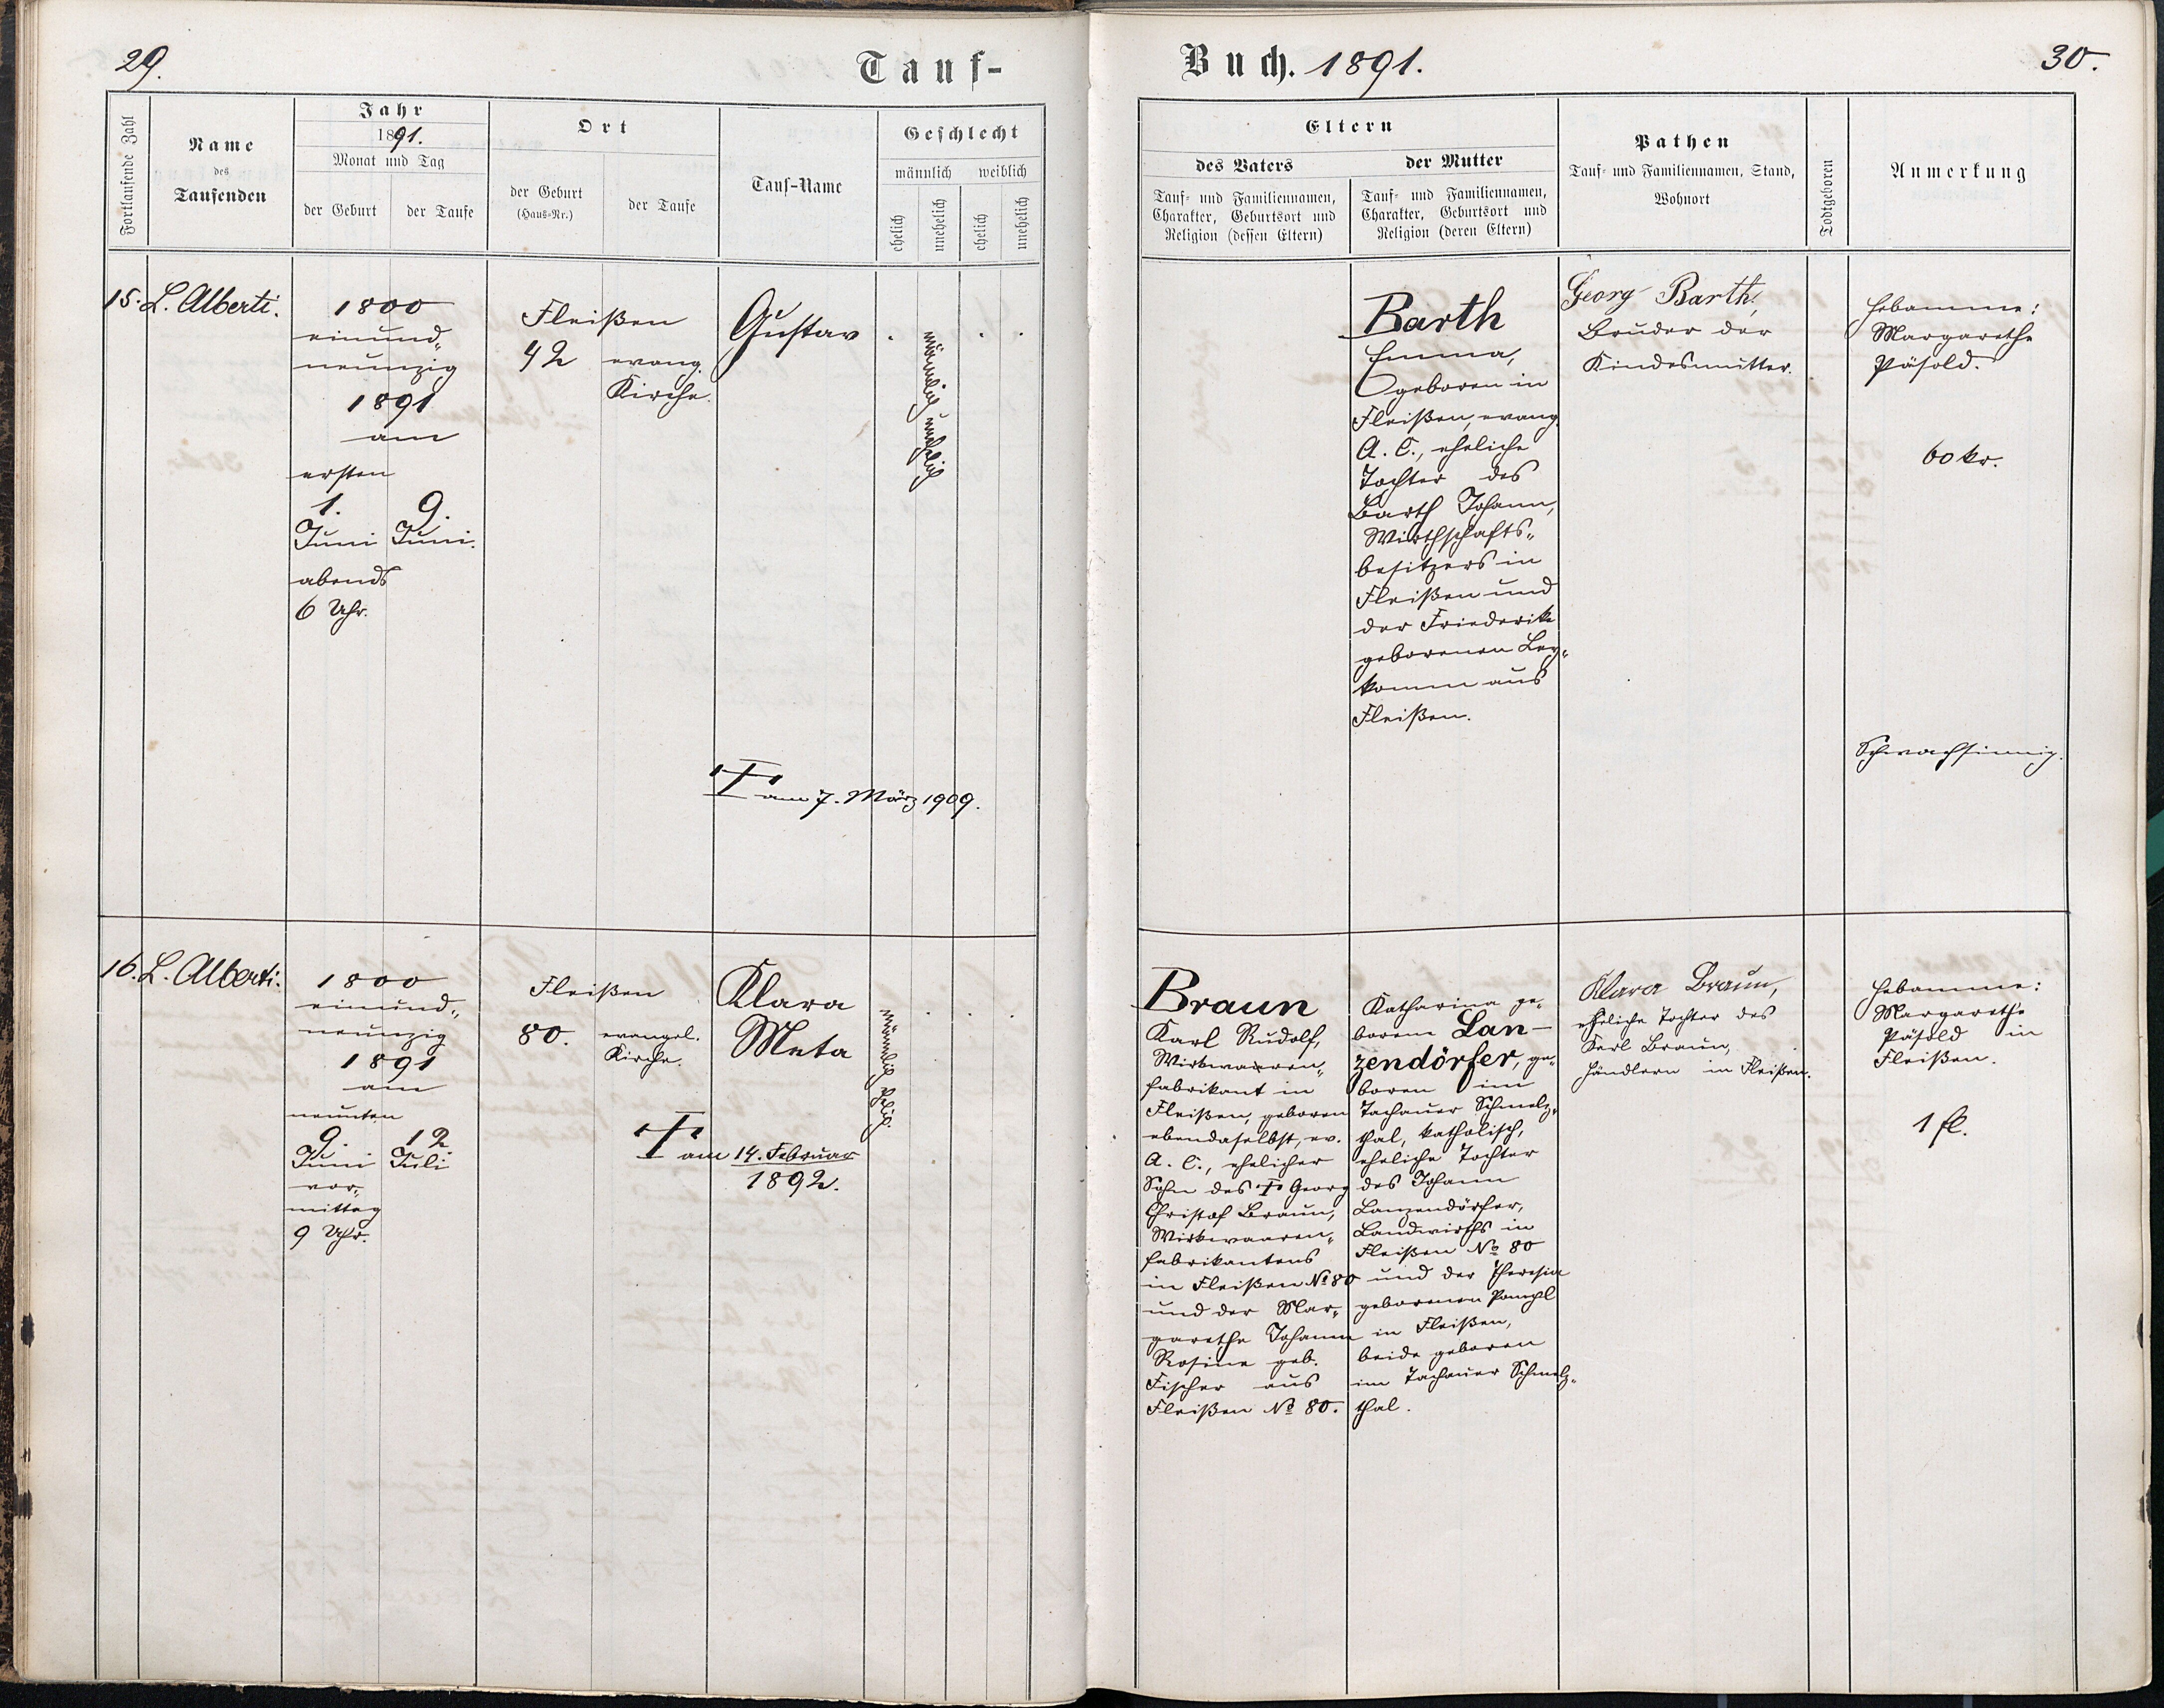 29.
Tauf-
Fortlaufende Zahl
Name
des
Taufenden
Jahr
1891.
Monat und Tag
der Geburt
der Taufe
Ort
der Geburt
(Haus-Nr.)
der Taufe
Tauf-Name
Geschlecht
männlich
weiblich
ehelich
unehelich
ehelich
unehelich
15.
L. Alberti.
1800
einund„
neunzig
1891
am
ersten
1.
Juni
abends
6 Uhr.
9.
Juni.
Fleißen
42
evang.
Kirche.
Gustav
männlich unehelich
am 7. März 1909.
16.
L. Alberti.
1800
einund„
neunzig
1891
am
neunten
9.
Juni
vor„
mittag
9 Uhr.
12
Juli
Fleißen
80.
evangel.
Kirche.
Klara
Meta
am 14. Februar
1892.
Buch. 1891.
30.
Eltern
des Vaters
Tauf- und Familiennamen,
Charakter, Geburtsort und
Religion (dessen Eltern)
der Mutter
Tauf- und Familiennamen,
Charakter, Geburtsort und
Religion (deren Eltern)
Pathen
Tauf- und Familiennamen, Stand,
Wohnort
Todtgeboren
Anmerkung
Barth
Emma,
geboren in
Fleißen, evang.
A. C., eheliche
Tochter des
Barth Johann,
Wirthschafts„
besitzers in
Fleißen und
der Friederike
geborenen Ley„
komm aus
Fleißen.
Georg Barth,
Bruder der
Kindesmutter.
Hebamme:
Margarethe
Päsold.
60 kr.
Schwachsinnig.
Braun
Karl Rudolf,
Wirkwaaren„
fabrikant in
Fleißen, geboren
ebendaselbst, ev.
A. C., ehelicher
Sohn des † Georg
Christof Braun,
Wirkwaaren„
fabrikantens
in Fleißen № 80
und der Mar„
garethe Johanna
Rosine geb.
Fischer aus
Fleißen № 80.
Katharina ge„
borene Lan-
zendörfer, ge„
boren im
Tachauer Schmelz„
thal, katholisch,
eheliche Tochter
des Johann
Lanzendörfer,
Landwirths in
Fleißen № 80
und der Theresia
geborenen Pompl
in Fleißen,
beide geboren
im Tachauer Schmelz„
thal.
Klara Braun,
eheliche Tochter des
Karl Braun,
Händlers in Fleißen.
Hebamme:
Margarethe
Päsold in
Fleißen.
1 fl.